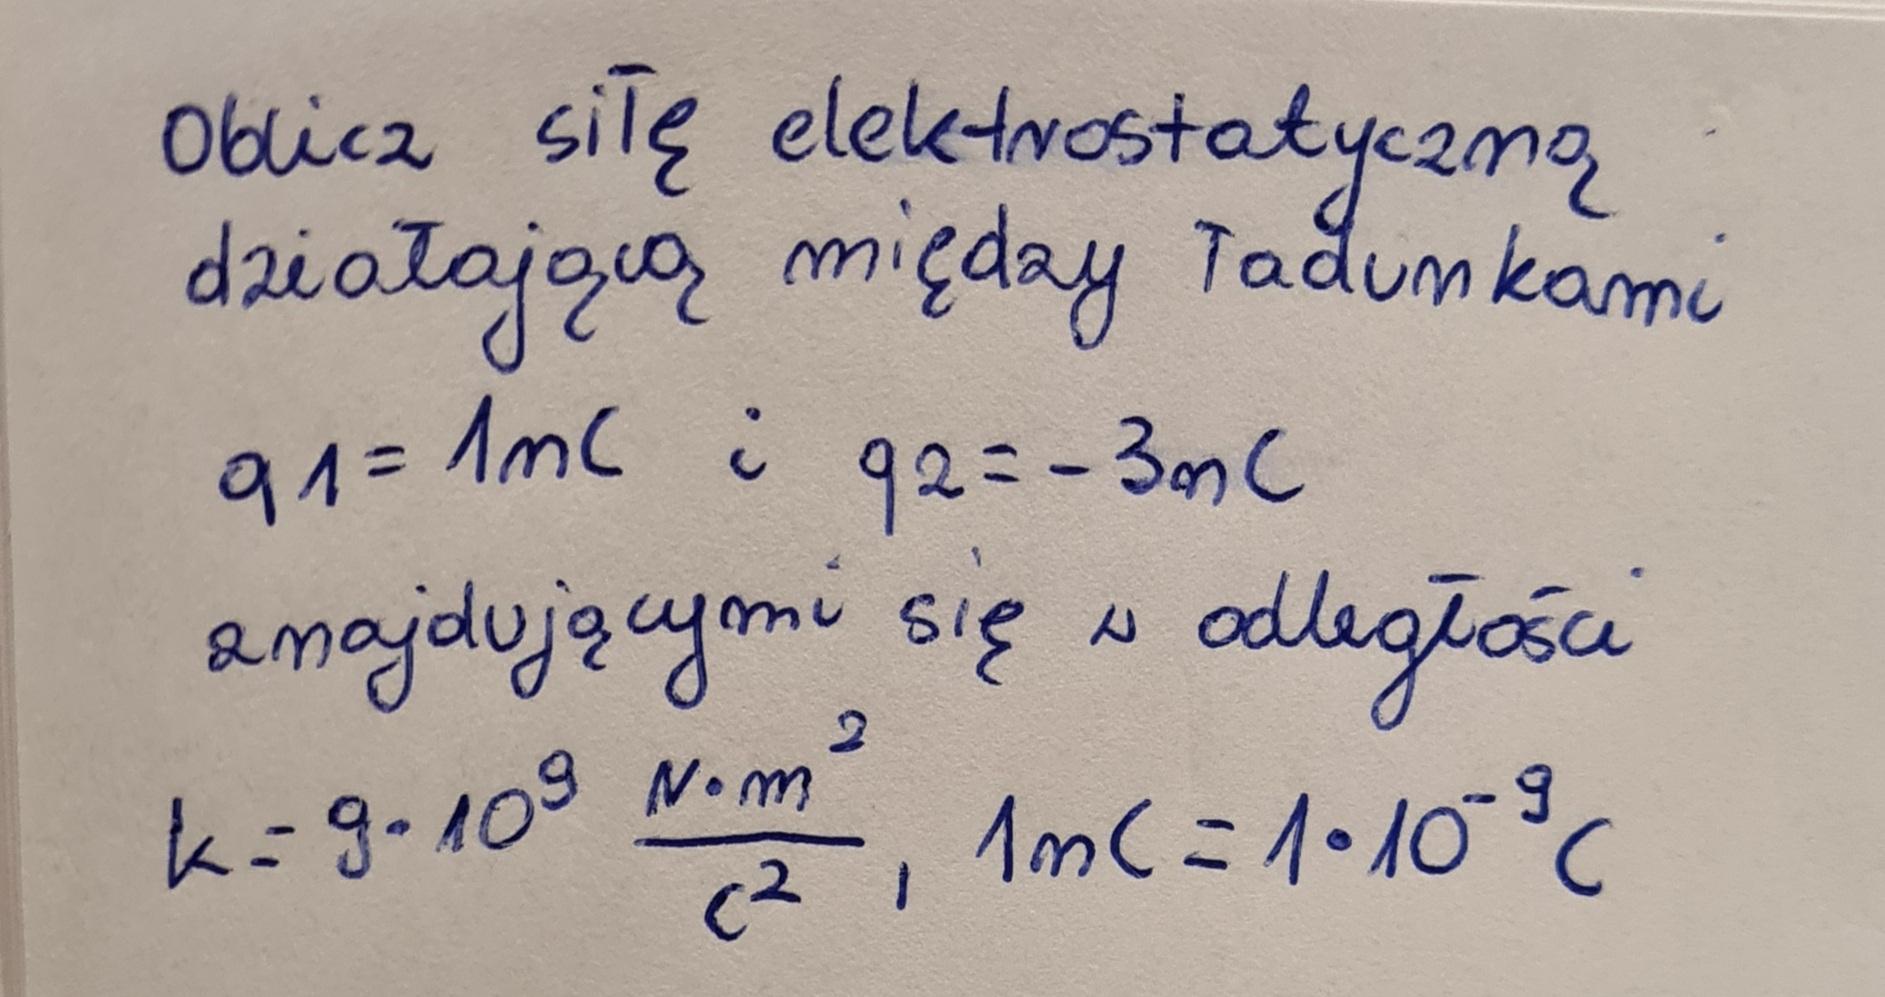 Oblicz siłę elektrostatyczną
działającą między ładunkami
q1 = 1nC i q2 = -3nC
znajdującymi się w odległości
k = 9·10⁹ N·m²/C², 1nC = 1·10⁻⁹C